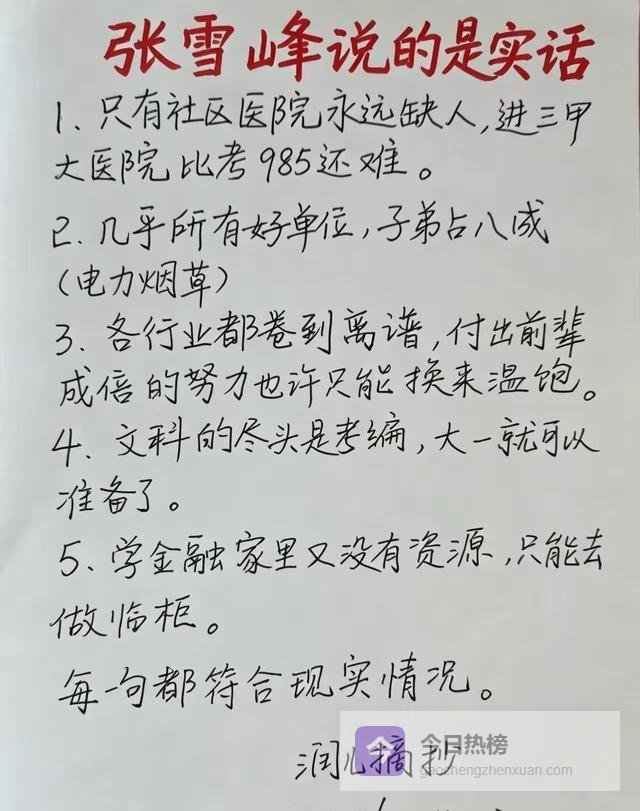 张雪峰说的是实话
1、只有社区医院永远缺人,进三甲
大医院比考985还难。
2、几乎所有好单位,子弟占八成
(电力烟草)
3、各行业都卷到离谱,付出前辈
成倍的努力也许只能换来温饱。
4、文科的尽头是考编,大一就可以
准备了。
5、学金融家里又没有资源,只能去
做临柜。
每一句都符合现实情况。
润儿摘抄
今
今日热榜
gaochengzhenxuan.com